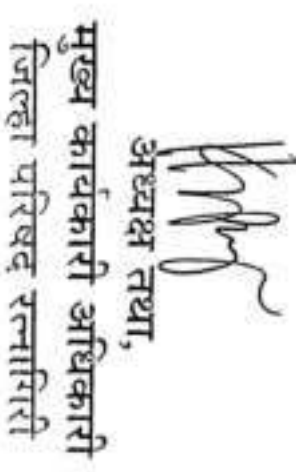 अध्यक्ष तथा,
मुख्य कार्यकारी अधिकारी
जिल्हा परिषद रत्नागिरी